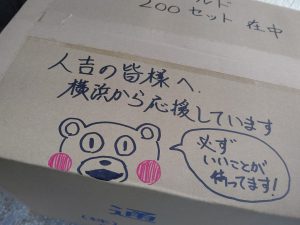 ルド
200セット 在中
人吉の皆様へ.
横浜から応援しています
必ず
いいことが
待ってます!